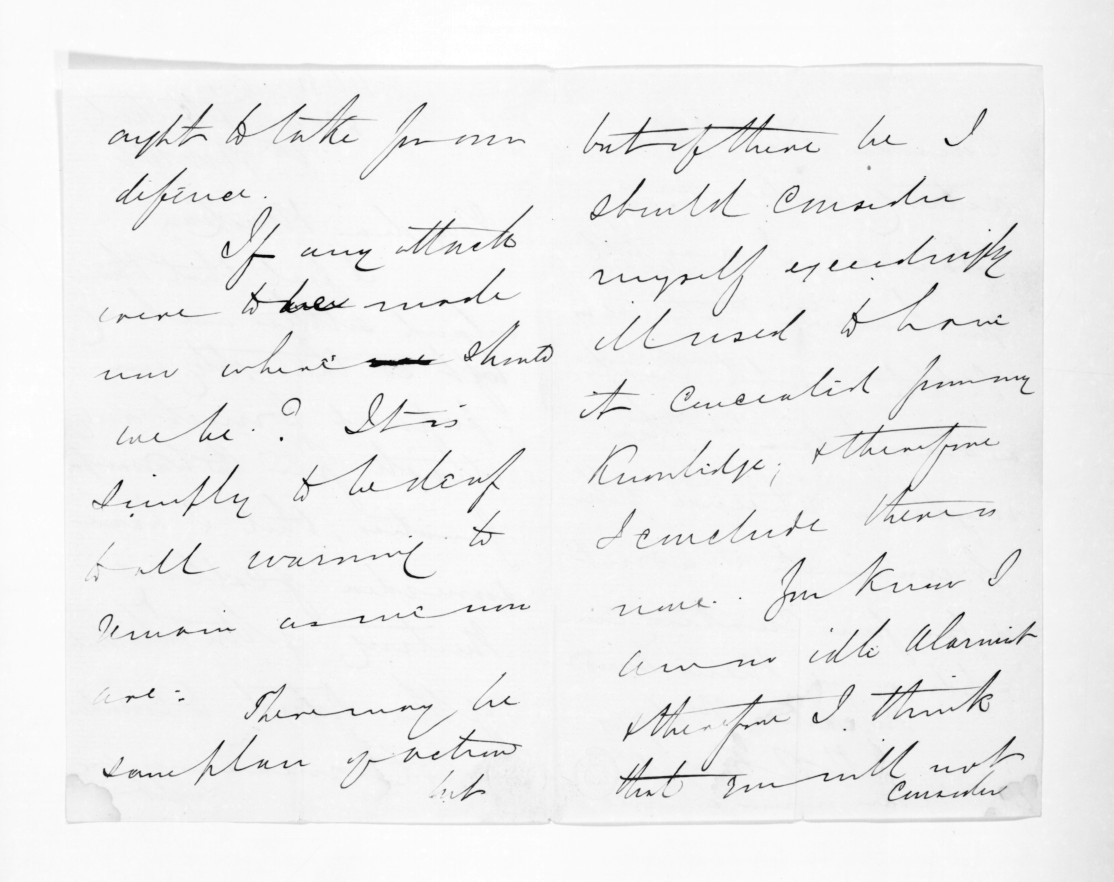 ought to take for our
defence.
If any attack
were to be made
now where should
we be? It is
simply to be deaf
to all warning to
remain as we now
are -
There may be
some plan of action
but
but if there be I
should consider
myself exceedingly
ill used to have
it concealed from my
knowledge; & therefore
I conclude there is
none. You know I
am no idle alarmist
& therefore I think
that you will not
consider